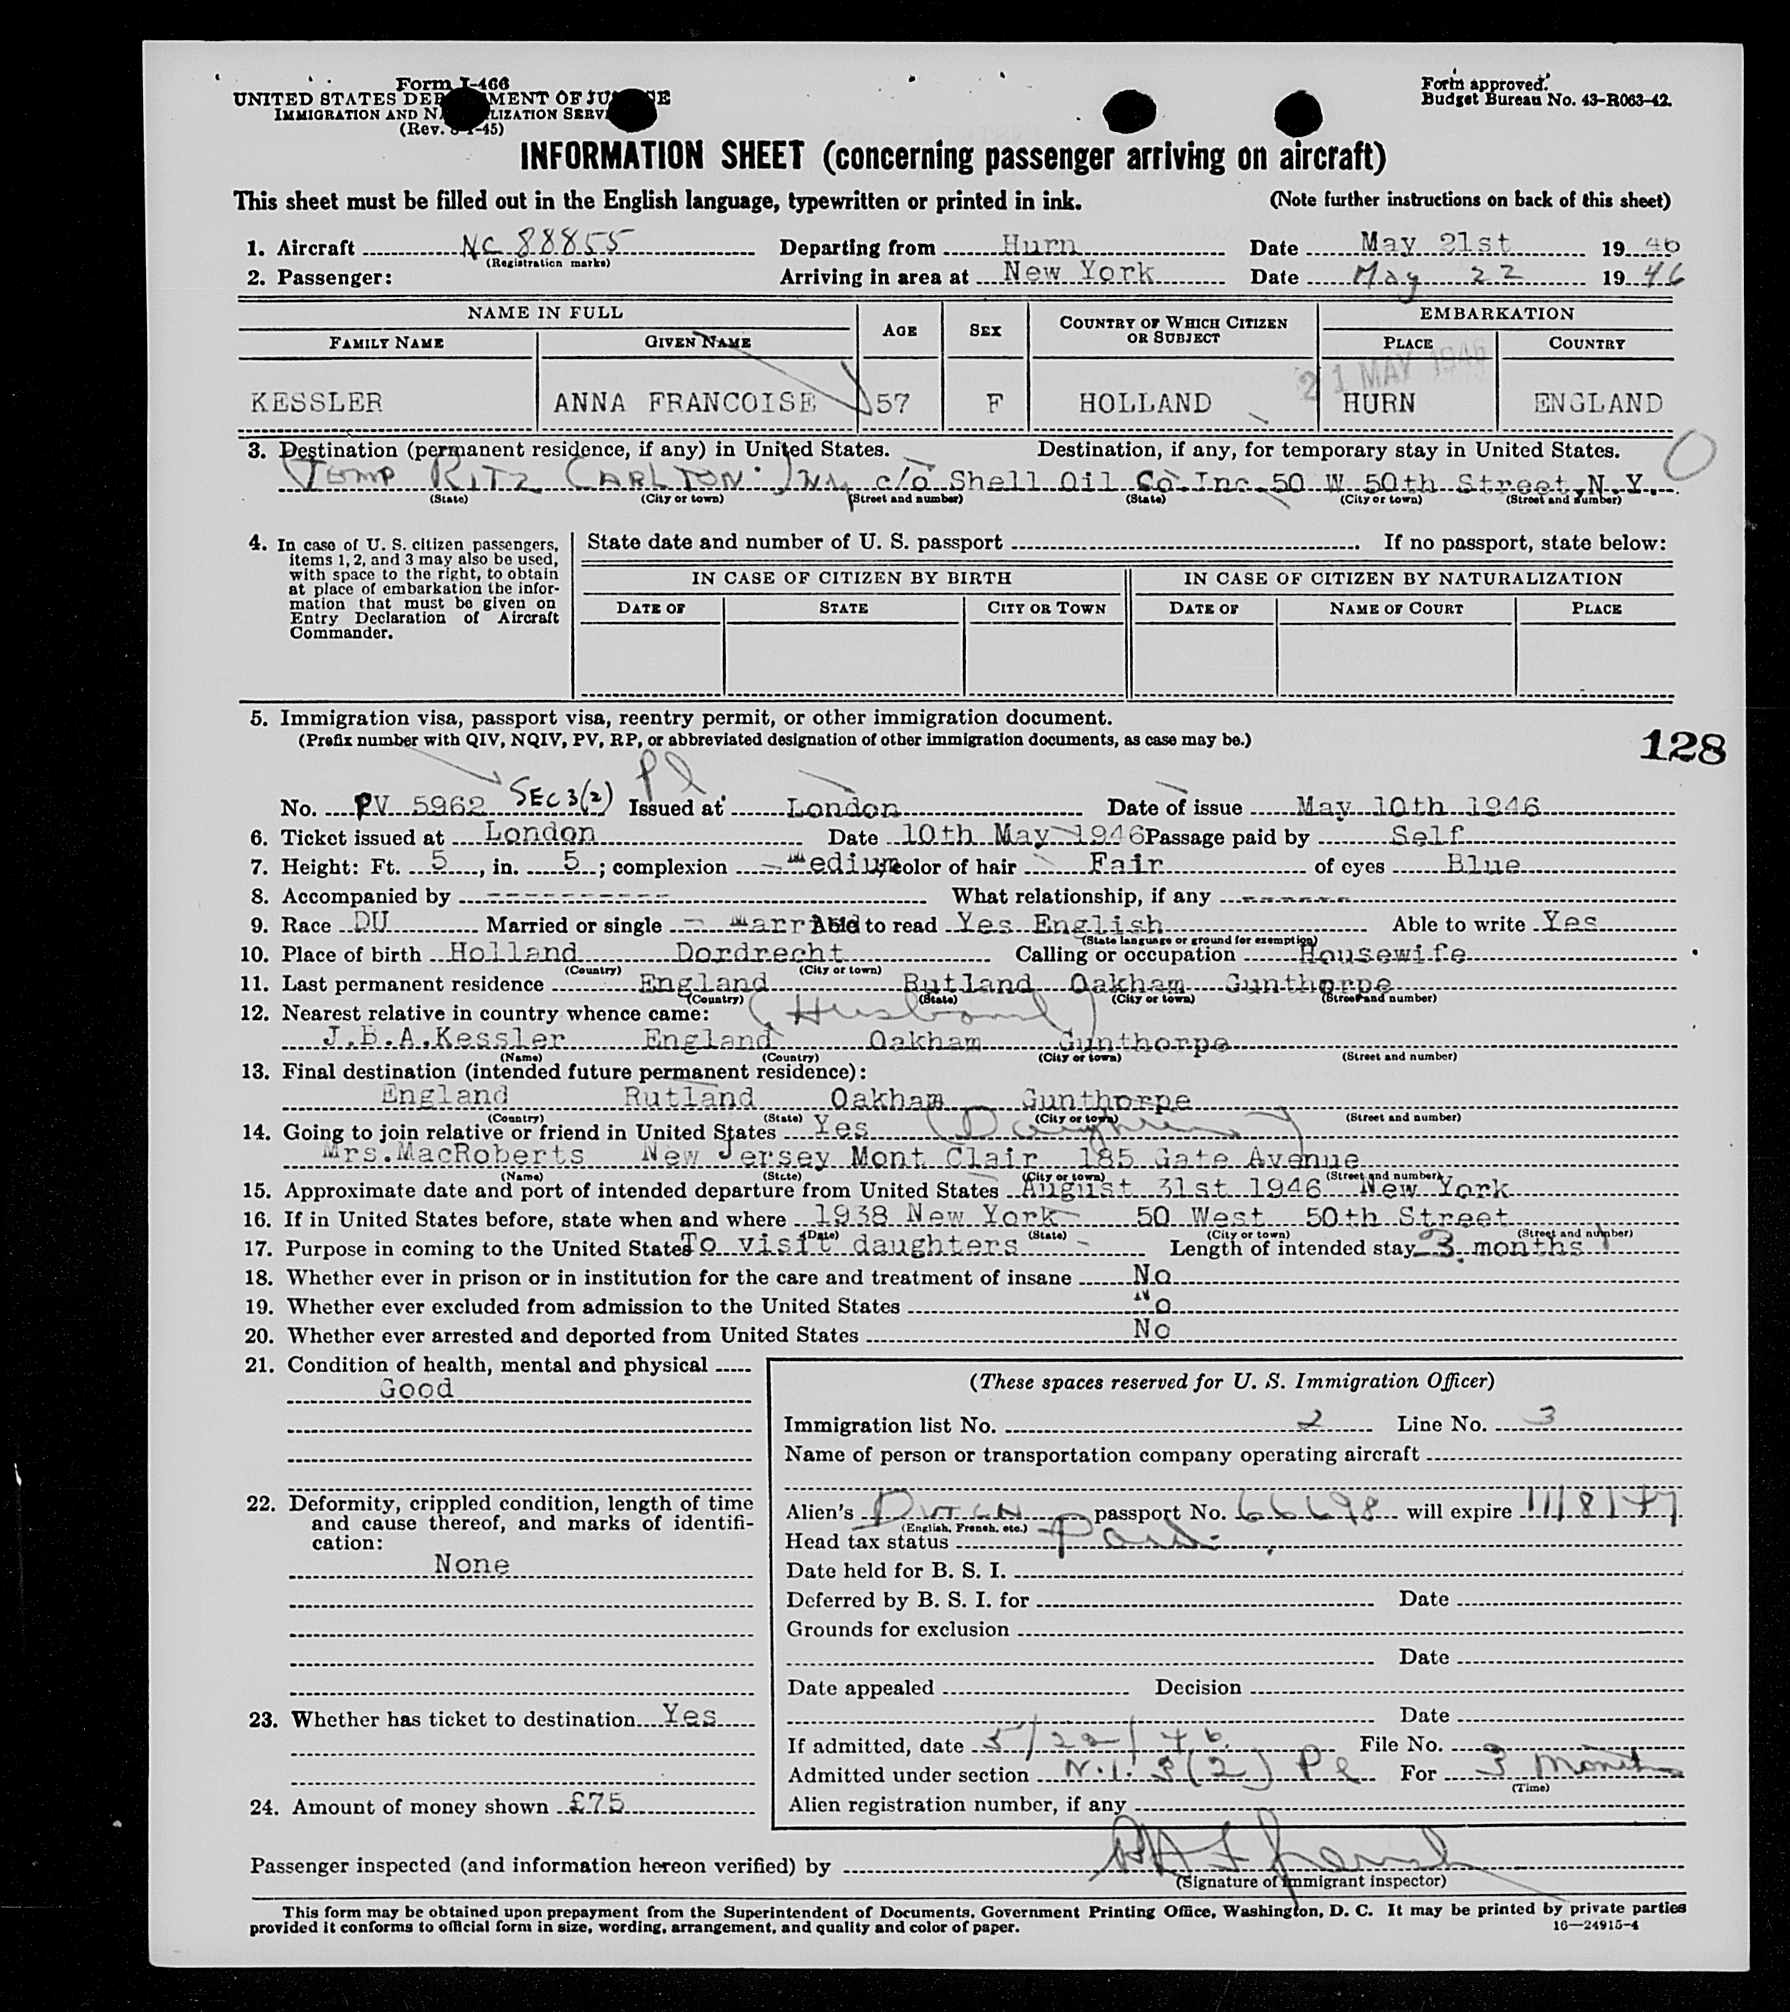 Form I-466
UNITED STATES DEPARTMENT OF JUSTICE
IMMIGRATION AND NATURALIZATION SERVICE
(Rev. -45)
Form approved.
Budget Bureau No. 43-R063-42.
INFORMATION SHEET (concerning passenger arriving on aircraft)
This sheet must be filled out in the English language, typewritten or printed in ink. (Note further instructions on back of this sheet)
1. Aircraft NC 88855 Departing from Hurn Date May 21st 19 46
(Registration marks)
2. Passenger: Arriving in area at New York Date May 22 19 46
NAME IN FULL AGE SEX COUNTRY OF WHICH CITIZEN OR SUBJECT EMBARKATION
FAMILY NAME GIVEN NAME PLACE COUNTRY
21 MAY 1946
KESSLER ANNA FRANCOISE 57 F HOLLAND HURN ENGLAND
3. Destination (permanent residence, if any) in United States. Destination, if any, for temporary stay in United States.
(TEMP RITZ CARLTON) NY c/o Shell Oil Co.Inc.50 W 50th Street,N.Y.
(State) (City or town) (Street and number) (State) (City or town) (Street and number)
4. In case of U. S. citizen passengers, items 1, 2, and 3 may also be used, with space to the right, to obtain at place of embarkation the information that must be given on Entry Declaration of Aircraft Commander.
State date and number of U. S. passport . If no passport, state below:
IN CASE OF CITIZEN BY BIRTH IN CASE OF CITIZEN BY NATURALIZATION
DATE OF STATE CITY OR TOWN DATE OF NAME OF COURT PLACE
5. Immigration visa, passport visa, reentry permit, or other immigration document.
(Prefix number with QIV, NQIV, PV, RP, or abbreviated designation of other immigration documents, as case may be.)
128
No. PV 5962 SEC 3(2) Pl Issued at London Date of issue May 10th 1946
6. Ticket issued at London Date 10th May 1946 Passage paid by Self
7. Height: Ft. 5, in. 5; complexion Medium; color of hair Fair of eyes Blue
8. Accompanied by ---------- What relationship, if any ------
9. Race DU Married or single Married Able to read Yes English Able to write Yes
(State language or ground for exemption)
10. Place of birth Holland Dordrecht Calling or occupation Housewife
(Country) (City or town)
11. Last permanent residence England Rutland Oakham Gunthorpe
(Country) (State) (City or town) (Street and number)
12. Nearest relative in country whence came: (Husband)
J.B.A.Kessler England Oakham Gunthorpe
(Name) (Country) (City or town) (Street and number)
13. Final destination (intended future permanent residence):
England Rutland Oakham Gunthorpe
(Country) (State) (City or town) (Street and number)
14. Going to join relative or friend in United States Yes (Daughter)
Mrs.MacRoberts New Jersey Mont Clair 185 Gate Avenue
(Name) (State) (City or town) (Street and number)
15. Approximate date and port of intended departure from United States August 31st 1946 New York
16. If in United States before, state when and where 1938 New York 50 West 50th Street
(Date) (State) (City or town) (Street and number)
17. Purpose in coming to the United States To visit daughters Length of intended stay 3 months
18. Whether ever in prison or in institution for the care and treatment of insane No
19. Whether ever excluded from admission to the United States No
20. Whether ever arrested and deported from United States No
21. Condition of health, mental and physical
Good
22. Deformity, crippled condition, length of time and cause thereof, and marks of identification:
None
23. Whether has ticket to destination Yes
24. Amount of money shown £75
(These spaces reserved for U. S. Immigration Officer)
Immigration list No. 2 Line No. 3
Name of person or transportation company operating aircraft
Alien's DUTCH passport No. 66698 will expire 11/8/47
(English, French, etc.)
Head tax status Paid
Date held for B. S. I.
Deferred by B. S. I. for Date
Grounds for exclusion
Date
Date appealed Decision
Date
If admitted, date 5/22/46 File No.
Admitted under section N.I. 3(2) Pl For 3 months
(Time)
Alien registration number, if any
Passenger inspected (and information hereon verified) by
(Signature of immigrant inspector)
This form may be obtained upon prepayment from the Superintendent of Documents, Government Printing Office, Washington, D. C. It may be printed by private parties
provided it conforms to official form in size, wording, arrangement, and quality and color of paper. 16—24915-4